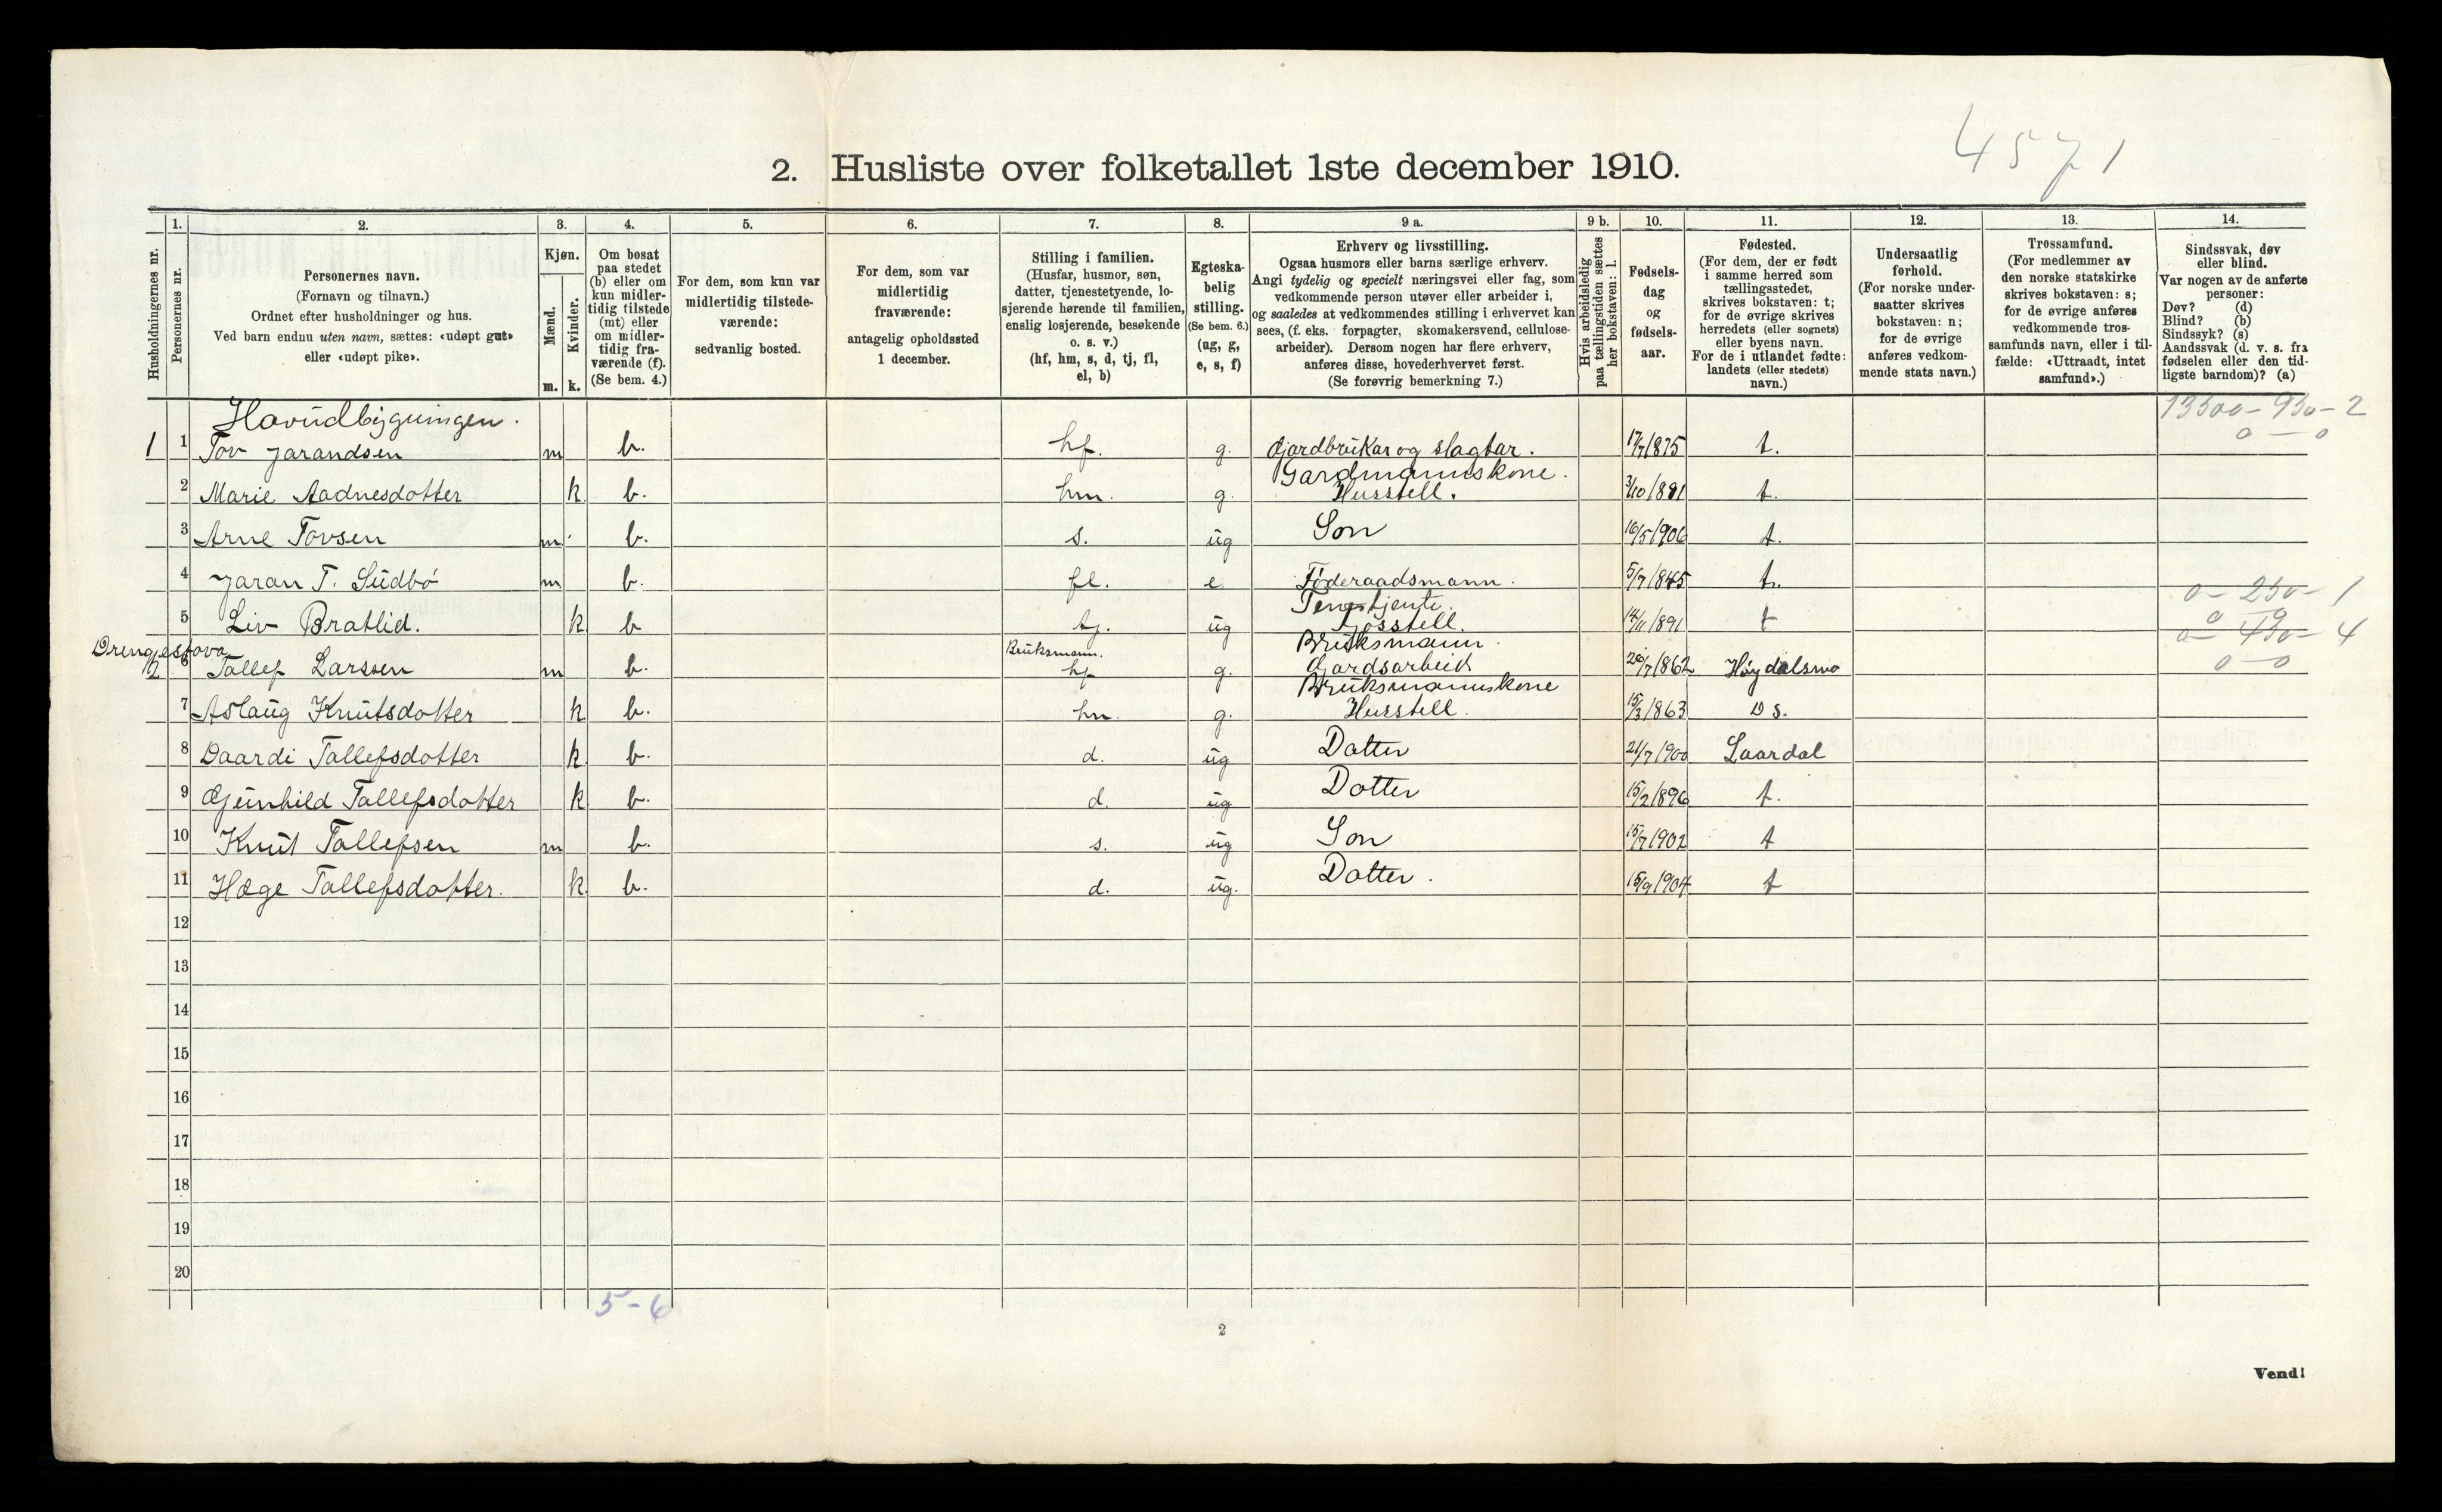 4571
2. Husliste over folketallet 1ste december 1910.
Husholdningernes nr.
1.
Personernes nr.
2.
Personernes navn.
(Fornavn og tilnavn.)
Ordnet efter husholdninger og hus.
Ved barn endnu uten navn, sættes: «udøpt gut»
eller «udøpt pike».
3.
Kjøn.
Mænd.
Kvinder.
m. k.
4.
Om bosat
paa stedet
(b) eller om
kun midler-
tidig tilstede
(mt) eller
om midler-
tidig fra-
værende (f).
(Se bem. 4.)
5.
For dem, som kun var
midlertidig tilstede-
værende:
sedvanlig bosted.
6.
For dem, som var
midlertidig
fraværende:
antagelig opholdssted
1 december.
7.
Stilling i familien.
(Husfar, husmor, søn,
datter, tjenestetyende, lo-
sjerende hørende til familien,
enslig losjerende, besøkende
o. s. v.)
(hf, hm, s, d, tj, fl,
el, b)
8.
Egteska-
belig
stilling.
(Se bem. 6.)
(ug, g,
e, s, f)
9 a.
Erhverv og livsstilling.
Ogsaa husmors eller barns særlige erhverv.
Angi tydelig og specielt næringsvei eller fag, som
vedkommende person utøver eller arbeider i,
og saaledes at vedkommendes stilling i erhvervet kan
sees, (f. eks. forpagter, skomakersvend, cellulose-
arbeider). Dersom nogen har flere erhverv,
anføres disse, hovederhvervet først.
(Se forøvrig bemerkning 7.)
9 b.
Hvis arbeidsledig
paa tællingstiden sættes
her bokstaven: l.
10.
Fødsels-
dag
og
fødsels-
aar.
11.
Fødested.
(For dem, der er født
i samme herred som
tællingsstedet,
skrives bokstaven: t;
for de øvrige skrives
herredets (eller sognets)
eller byens navn.
For de i utlandet fødte:
landets (eller stedets)
navn.)
12.
Undersaatlig
forhold.
(For norske under-
saatter skrives
bokstaven: n;
for de øvrige
anføres vedkom-
mende stats navn.)
13.
Trossamfund.
(For medlemmer av
den norske statskirke
skrives bokstaven: s;
for de øvrige anføres
vedkommende tros-
samfunds navn, eller i til-
fælde: «Uttraadt, intet
samfund».)
14.
Sindssvak, døv
eller blind.
Var nogen av de anførte
personer:
Døv? (d)
Blind? (b)
Sindssyk? (s)
Aandssvak (d. v. s. fra
fødselen eller den tid-
ligste barndom)? (a)
Hovudbygningen. 13500 - 930 - 2
0 - 0
1 1 Tov Jarandsen m b. hf. g. Gjardbrukar og slagtar. 17/7 1875 t.
Gardmannskone.
2 Marie Aadnesdotter k b. hm. g. Husstell. 3/10 1881 t.
3 Arne Tovsen m b. s. ug Son 16/5 1906 t.
4 Jaran T. Sudbö m b. fl. e Föderaadsmann. 5/7 1845 t.
0 - 250 - 1
Tenestjente.
5 Liv Bratlid. k b tj. ug Fjösstell. 14/11 1891 t
Drengestova Bruksmann. Bruksmann.
2 6 Tallef Larssen m b. hf g. Gjardsarbeid 26/7 1862 Høydalsmo
0 - 0
Bruksmannskone
7 Aslaug Knutsdotter k b. hm. g. Husstell. 15/3 1863 Ds.
8 Daardi Tallefsdotter k. b. d. ug Dotter 21/7 1900 Laardal
9 Gjunhild Tallefsdotter k b. d. ug Dotter 15/2 1896 t.
10 Knut Tallefsen m b. s. ug Son 15/7 1902 t
11 Hæge Tallefsdotter. k. b. d. ug. Dotter. 15/9 1904 t
12
13
14
15
16
17
18
19
20
5 - 6
2
Vend!